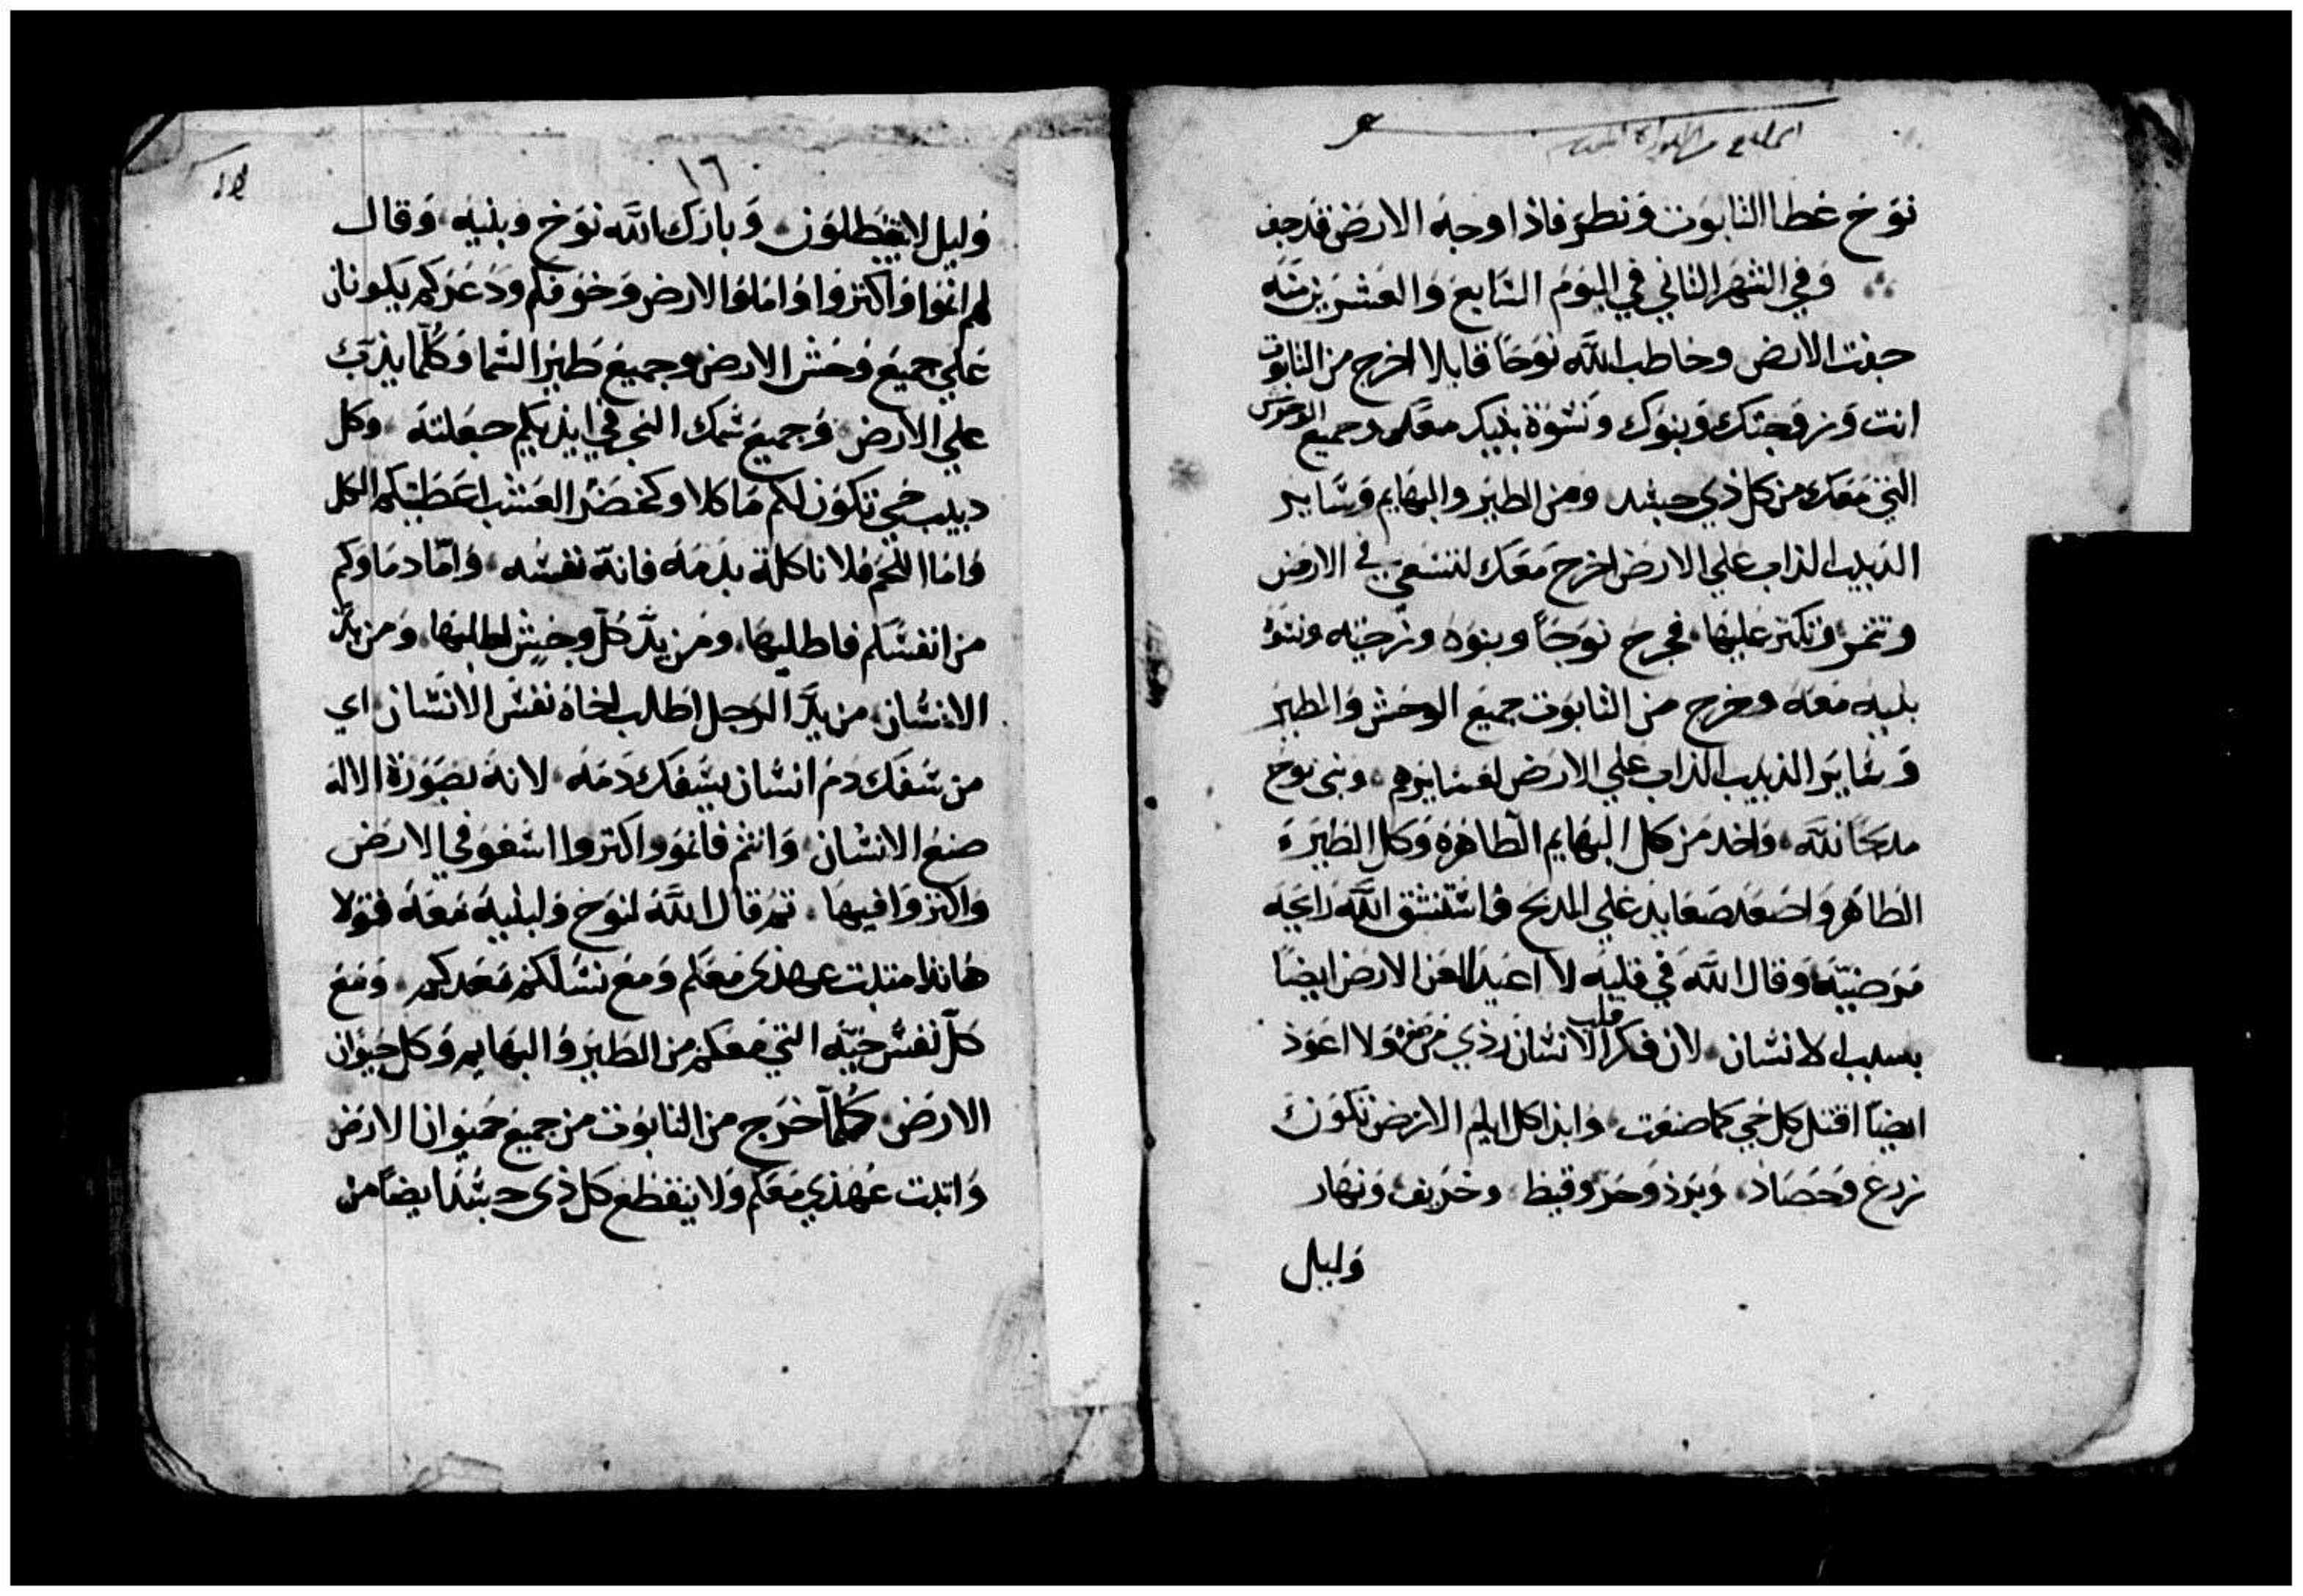 نوح غطا التابوت ونظر فاذا وجه الارض قد جف
وفي الشهر الثاني في اليوم السابع والعشرين منه
جفت الارض وخاطب الله نوحا قايلا اخرج من التابوت
انت وزوجتك وبنوك ونسوة بنيك معك وجميع الوحوش
التي معك من كل ذي جسد ومن الطير والبهايم وساير
الدبيب الداب علي الارض اخرج معك لتسعي في الارض
وتنمو وتكثر عليها فخرج نوحاً وبنوه وزوجته ونسوة
بنيه معه وخرج من التابوت جميع الوحش والطير
وساير الدبيب الداب علي الارض لعشايرهم وبنى نوح
مدبحاً لله واخد من كل البهايم الطاهره وكل الطير
الطاهر واصعد صعايد علي المدبح واستنشق الله رايحه
مرضيه وقال الله في قلبه لا اعيد العن الارض ايضاً
بسبب الانسان لان فكر قلب الانسان ردي من صغره ولا اعود
ايضاً اقتل كل حي كما صنعت وابدا كل ايام الارض تكون
زرع وحصاد وبرد وحر وقيظ وخريف ونهار
وليل
١٦
وليل لا يبطلون وبارك الله نوح وبنيه وقال
لهم انموا واكثروا واملوا الارض وخوفكم ودعركم يكونان
علي جميع وحش الارض وجميع طير السما وكلما يدب
علي الارض وجميع سمك البحر في ايديكم جعلته وكل
دبيب حي تكون لكم ماكلا وكخضر العشب اعطيتكم الكل
واما اللحم فلا تاكله بدمه فانه نفسه واما دماوكم
من انفسكم فاطلبها ومن يد كل وحش اطلبها ومن يد
الانسان من يد الرجل اطلب اخاه نفس الانسان اي
من سفك دم انسان يسفك دمه لانه بصورة الاله
صنع الانسان وانتم فانمو واكثروا اسعو في الارض
واكثروا فيها ثم قال الله لنوح ولبنيه معه قولا
هاندا متبت عهدي معكم ومع نسلكم بعدكم ومع
كل نفس حيه التي معكم من الطير والبهايم وكل حيوان
الارض كلما خرج من التابوت من جميع حيوان الارض
واتبت عهدي معكم ولا ينقطع كل ذي جسد ايضاً من